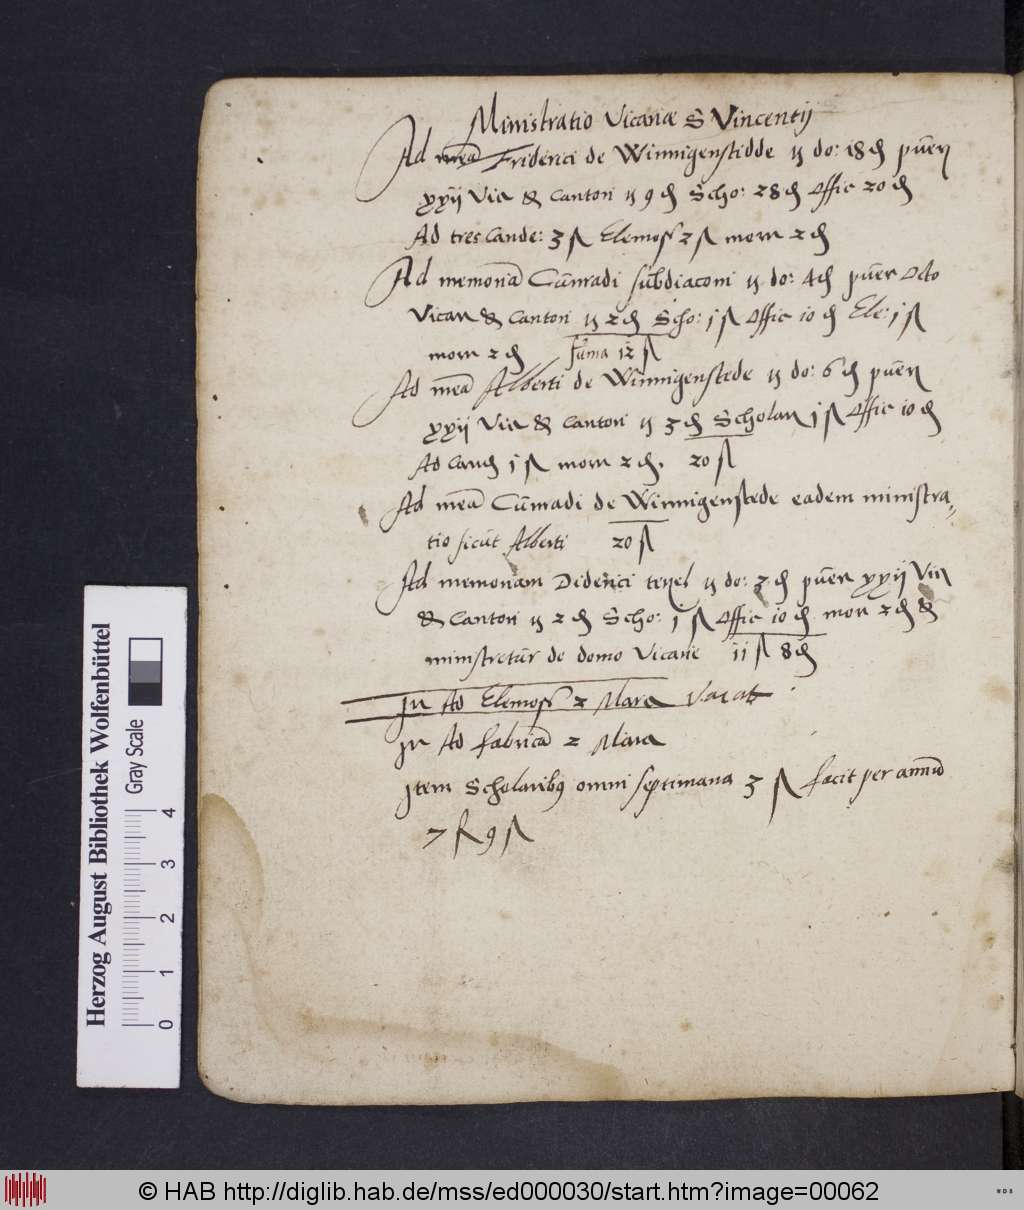 Ministratio Vicariæ S Vincentij
Ad meã Friderici de Winnigenstidde ij do: 18 ₰ pũeri
xxij Vic & Cantori ij 9 ₰ Scho: 28 ₰ Offic 20 ₰
Ad tres Cande: 3 ß Elemoß 2 ß morn 2 ₰
Ad memoriã Cũnradi subdiaconi ij do: 4 ₰ pũer octo
Vicar & Cantori ij 2 ₰ Scho: 1 ß Offic 10 ₰ Ele: 1 ß
morn 2 ₰ sũma 12 ß
Ad meã Alberti de Winnigenstede ij do: 6 ₰ pũeri
xxij Vic & Cantori ij 3 ₰ Scholar 1 ß Offic 10 ₰
Ad Cand 1 ß morn 2 ₰. 20 ß
Ad meã Cũnradi de Winnigenstede eadem ministra„
tio sicut Alberti 20 ß
Ad memoriam Diderici ij do: 3 ₰ pũeri xxij Vic
& Cantori ij 2 ₰ Scho: 1 ß Offic 10 ₰ mor 2 ₰ &
ministretur de domo Vicarie 11 ß 8 ₰
Ad Elemoß 2 Mar Vacat
Ad fabricã 2 Mar
Item Scholaribꝯ omni septimana 3 ß facit per annũ
7 9 ß
Herzog August Bibliothek Wolfenbüttel
Gray Scale
0 1 2 3 4
© HAB http://diglib.hab.de/mss/ed000030/start.htm?image=00062